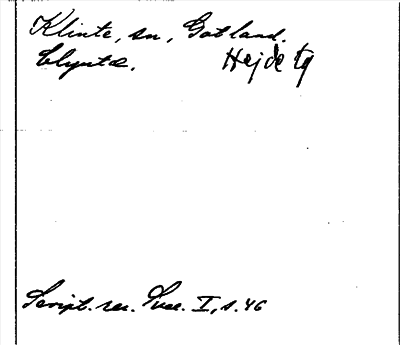 Klinte, sn, Gotland.
Clyntæ. Hejde tg
Script. rer. Svec. I, s. 46